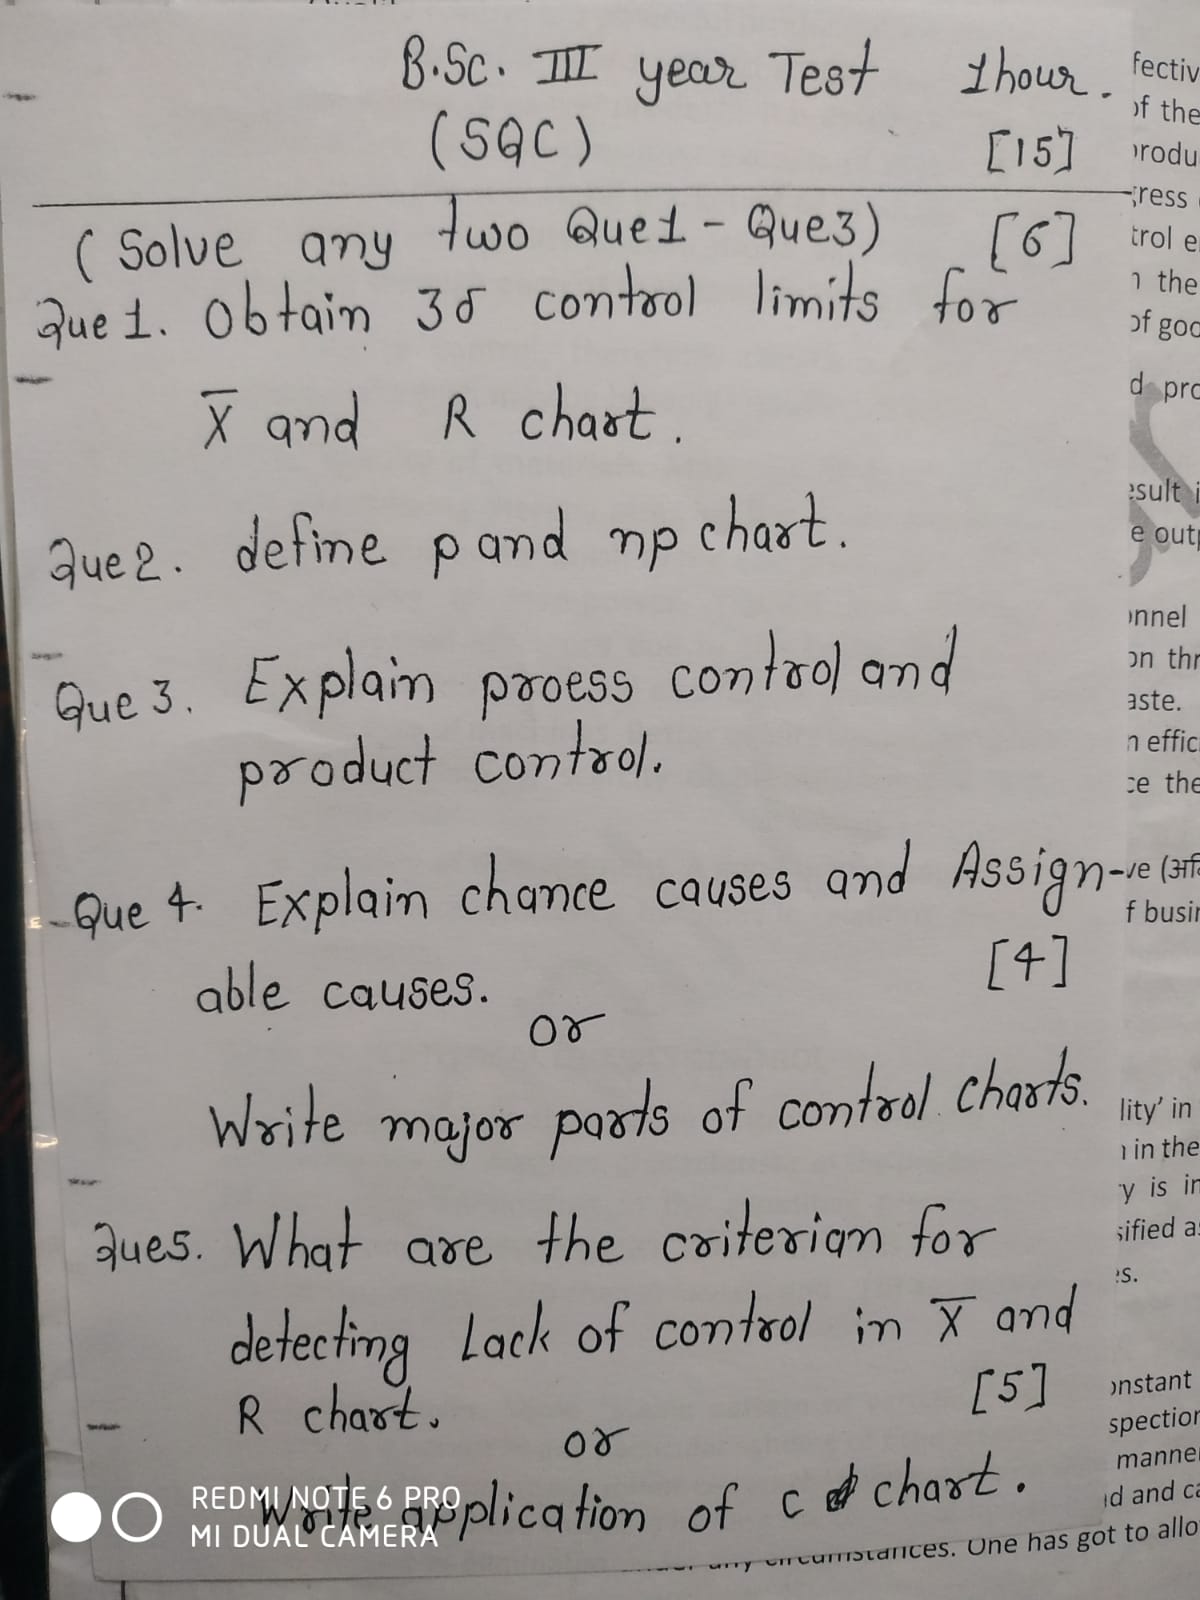 B.Sc. III year Test 1hour.
(SQC) [15]
(Solve any two Que1 - Que3) [6]
Que 1. Obtain 3σ control limits for
X̅ and R chart.
Que 2. define p and np chart.
Que 3. Explain proess control and
product control.
Que 4. Explain chance causes and Assign-
able causes. [4]
or
Write major parts of control charts.
Que5. What are the criterian for
detecting Lack of control in X̅ and
R chart. [5]
or
Write application of c chart.
REDMI NOTE 6 PRO
MI DUAL CAMERA
fectiv
of the
produ
gress
trol e
n the
of goo
d pro
esult i
e outp
onnel
on thr
aste.
n effic
ce the
ve (अि
f busin
lity' in
n in the
y is in
sified as
es.
onstant
spection
manner
id and ca
any circumstances. One has got to allo